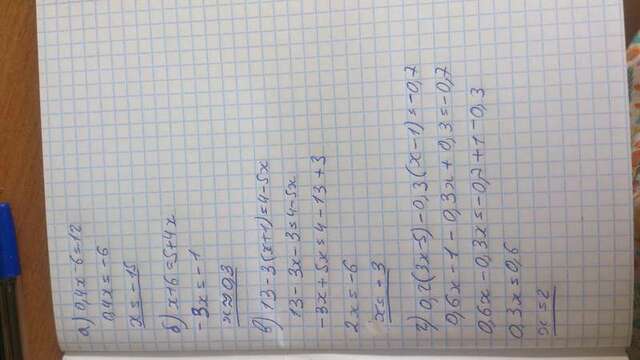 а) 0,4x-6=12
0,4x=-6
x=-15
б) x+6=5+4x
-3x=-1
x≈0,3
в) 13-3(x+1)=4-5x
13-3x-3=4-5x
-3x+5x=4-13+3
2x=-6
x=-3
г) 0,2(3x-5)-0,3(x-1)=-0,7
0,6x-1-0,3x+0,3=-0,7
0,6x-0,3x=-0,7+1-0,3
0,3x=0,6
x=2